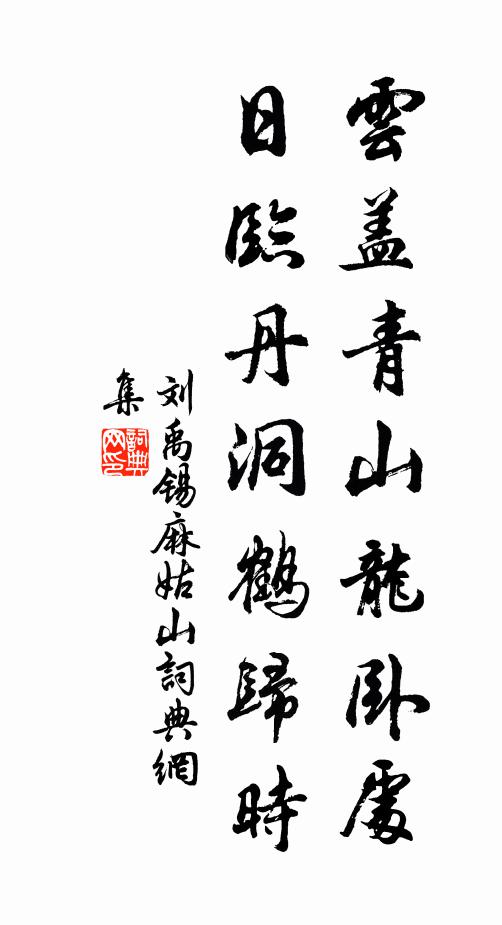 雲盖青山龍卧處
日臨丹洞鶴歸時
刘禹锡麻姑山詞典網
集
詞典
网印